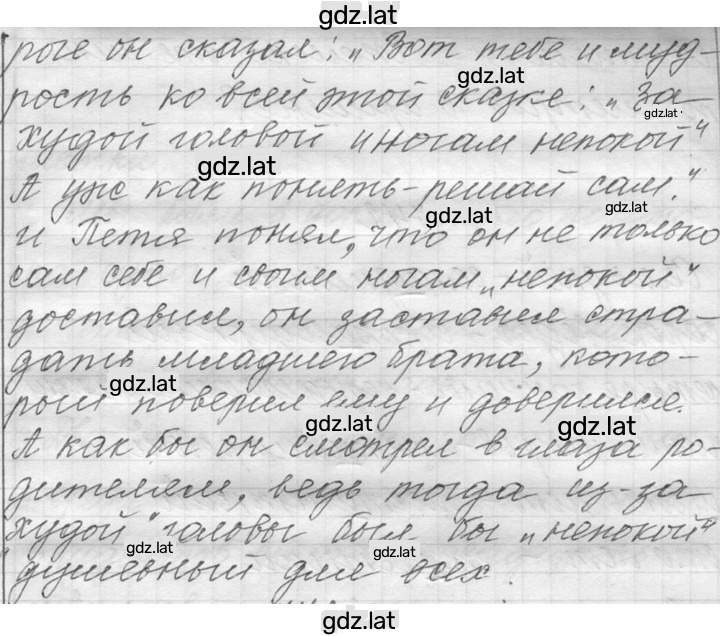 gdz.lat
роге он сказал: „Вот тебе и муд-
gdz.lat
рость ко всей этой сказке: „За
gdz.lat
худой головой и ногам непокой“.
gdz.lat
А уж как понять - решай сам.“
gdz.lat gdz.lat
И Петя понял, что он не только
сам себе и своим ногам „непокой“
доставил, он заставил стра-
дать младшего брата, кото-
gdz.lat
рый поверил ему и доверился.
gdz.lat gdz.lat
А как бы он смотрел в глаза ро-
дителям, ведь тогда из-за
„худой“ головы был бы „непокой“
gdz.lat gdz.lat
душевный для всех.
gdz.lat